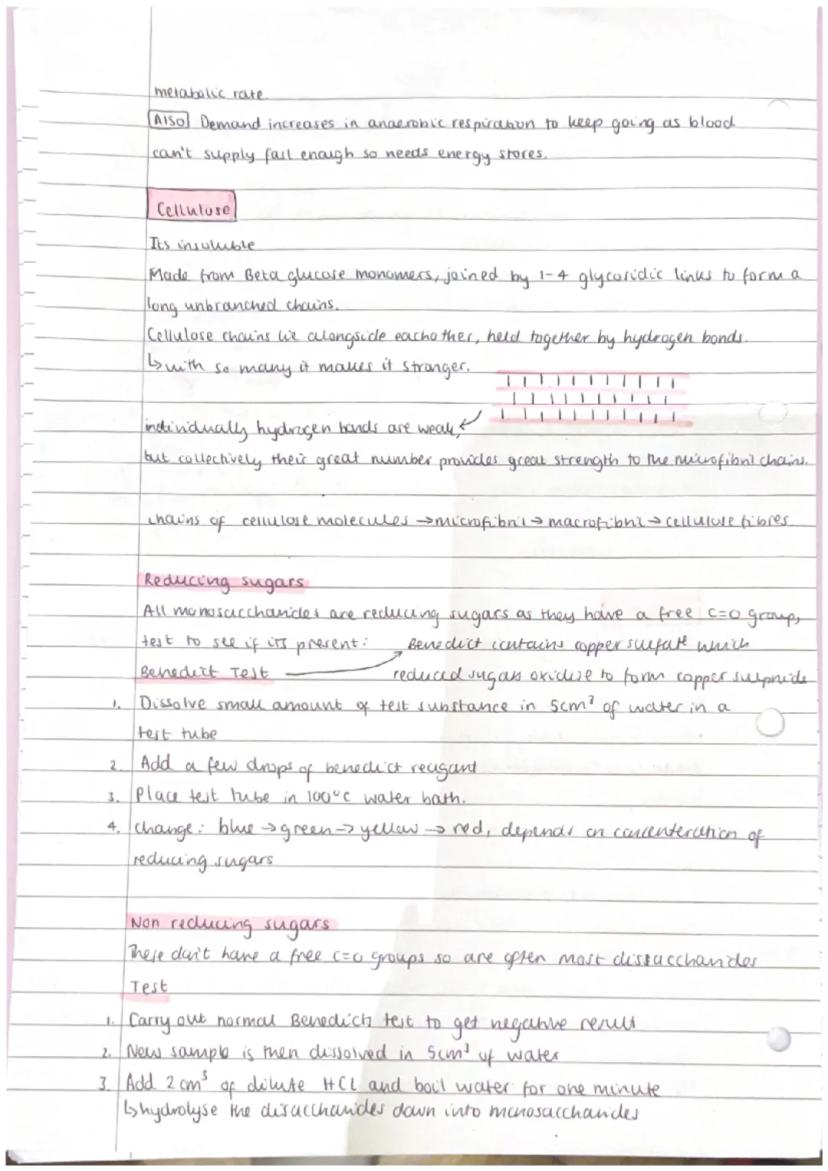 metabolic rate
Also Demand increases in anaerobic respiration to keep going as blood
can't supply fast enough so needs energy stores.
Cellulose
Its insoluble
Made from Beta glucose monomers, joined by 1-4 glycosidic links to form a
long unbranched chains.
Cellulose chains lie alongside eachother, held together by hydrogen bonds.
↳ with so many it makes it stronger.
individually hydrogen bonds are weak,
but collectively their great number provides great strength to the microfibril chains.
chains of cellulose molecules → microfibril → macrofibril → cellulose fibres
Reducing sugars
All monosaccharides are reducing sugars as they have a free C=O group,
test to see if its present: Benedict contains copper sulfate which
Benedict Test → reduced sugars oxidise to form copper sulphide
1. Dissolve small amount of test substance in 5cm³ of water in a
test tube
2. Add a few drops of benedict reagant
3. Place test tube in 100°C water bath.
4. Change: blue → green → yellow → red, depends on concenteration of
reducing sugars
Non reducing sugars
These don't have a free C=O groups so are often most dissacchandes
Test
1. Carry out normal Benedicts test to get negative result
2. New sample is then dissolved in 5cm³ of water
3. Add 2cm³ of dilute HCl and boil water for one minute
↳ hydrolyse the disaccharides down into monosaccharides